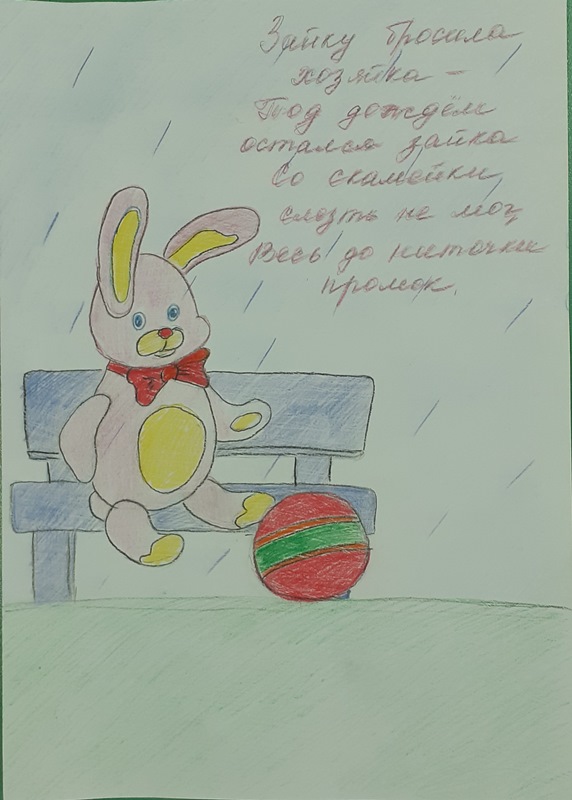 Зайку бросила
хозяйка —
Под дождём
остался зайка
Со скамейки
слезть не мог,
Весь до ниточки
промок.